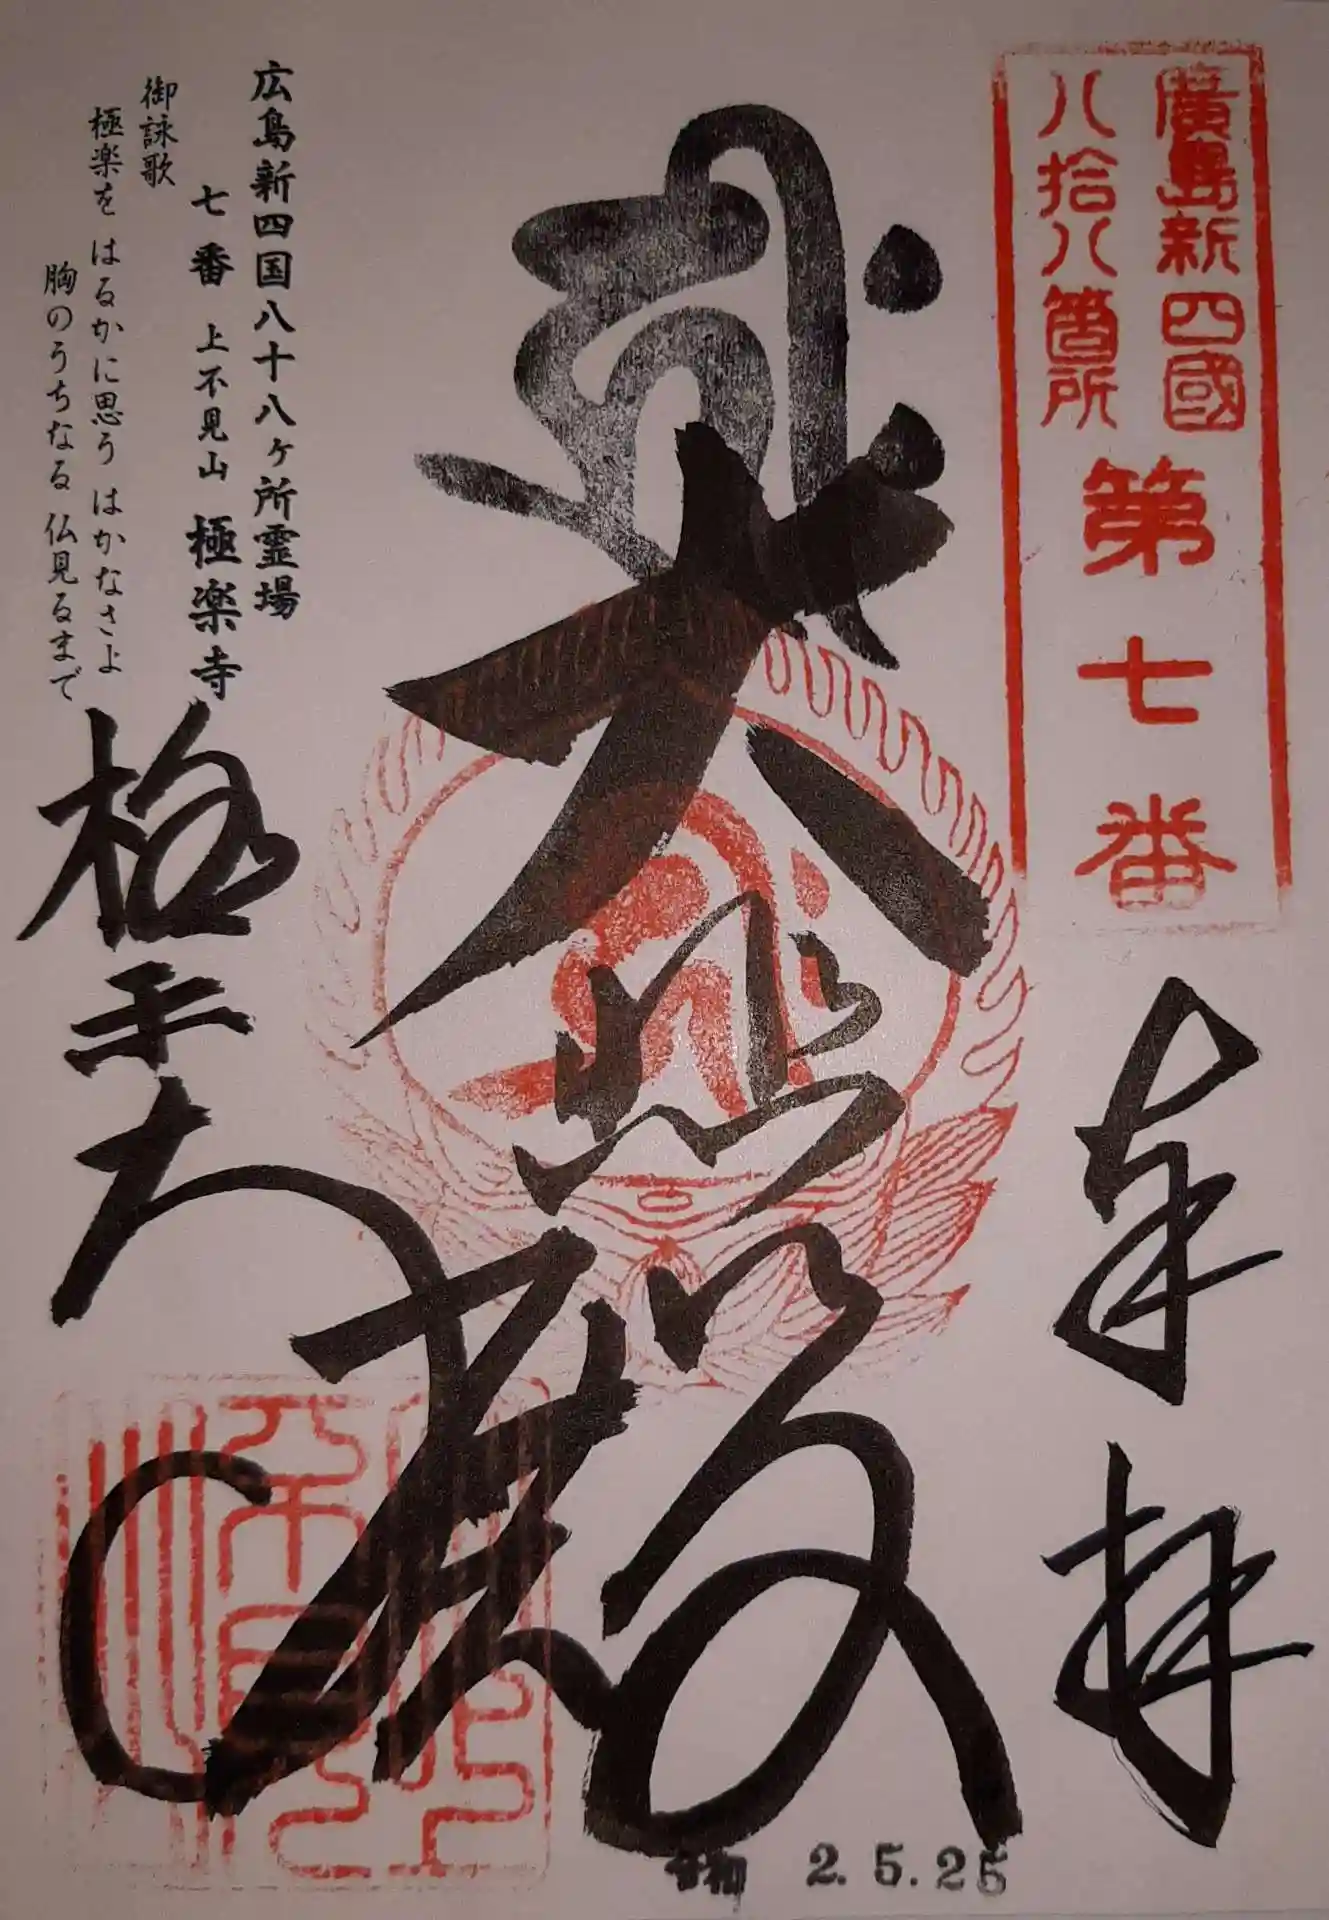 廣島新四國
八拾八箇所
第七番
奉拝
大悲殿
極楽寺
広島新四国八十八ヶ所霊場
七番 上不見山 極楽寺
御詠歌
極楽を はるかに思う はかなさよ
胸のうちなる 仏見るまで
令和 2.5.25